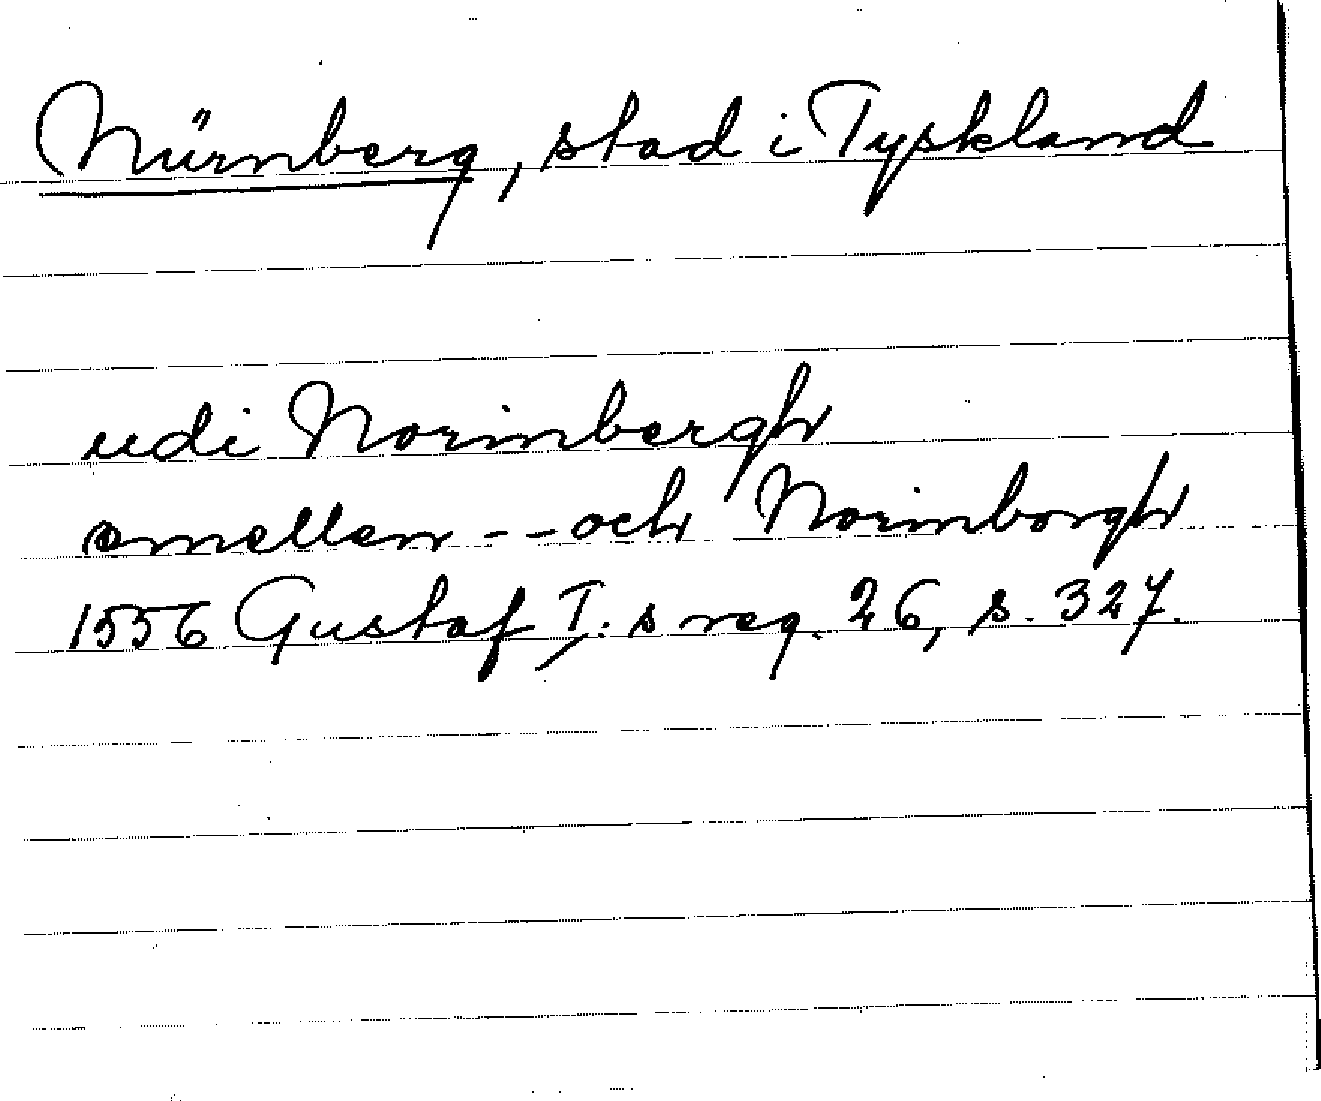 Nürnberg, stad i Tyskland
udi Norimbergh
emellen -- och Norimborgh
1556 Gustaf I:s reg. 26, s. 327.